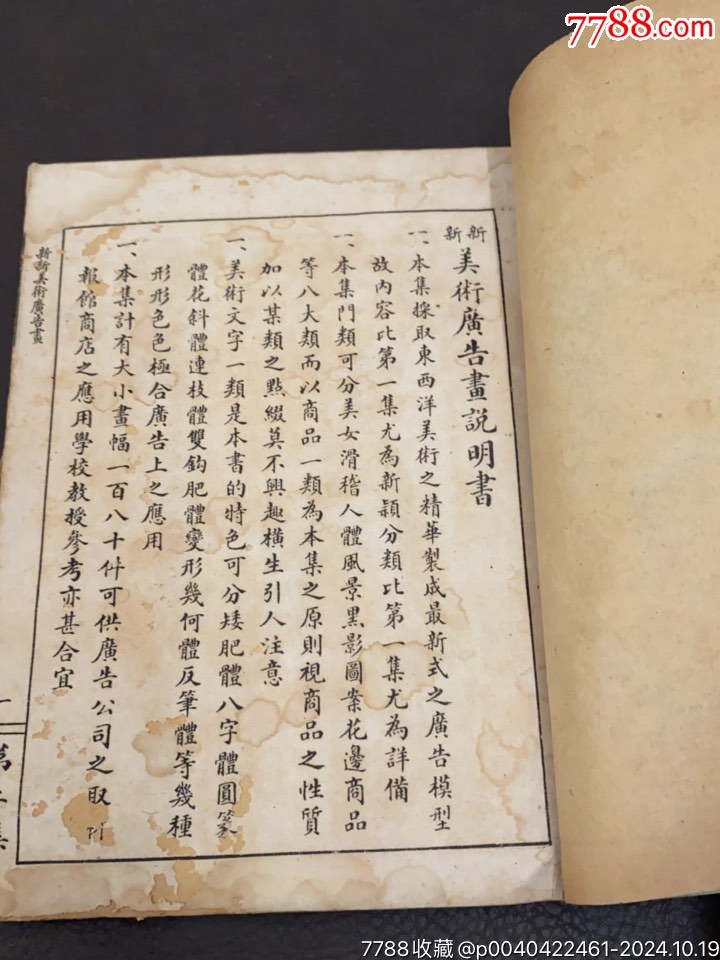 7788.com
新新美術廣告畫説明書
一、本集採取東西洋美術之精華製成最新式之廣告模型
故內容比第一集尤為新穎分類比第一集尤為詳備
一、本集門類可分美女滑稽人體風景黑影圖案花邊商品
等八大類而以商品一類為本集之原則視商品之性質
加以某類之點綴莫不興趣橫生引人注意
一、美術文字一類是本書的特色可分矮肥體八字體圓篆
體花斜體連枝體雙鈎肥體變形幾何體反筆體等幾種
形形色色極合廣告上之應用
一、本集計有大小畫幅一百八十件可供廣告公司之取
報館商店之應用學校教授參考亦甚合宜
新新美術廣告畫
一
第二集
7788收藏@p0040422461-2024.10.19